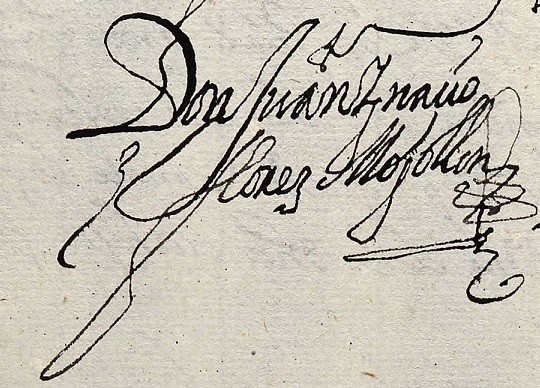 Don Juan Ynaçio
flores Mogollon